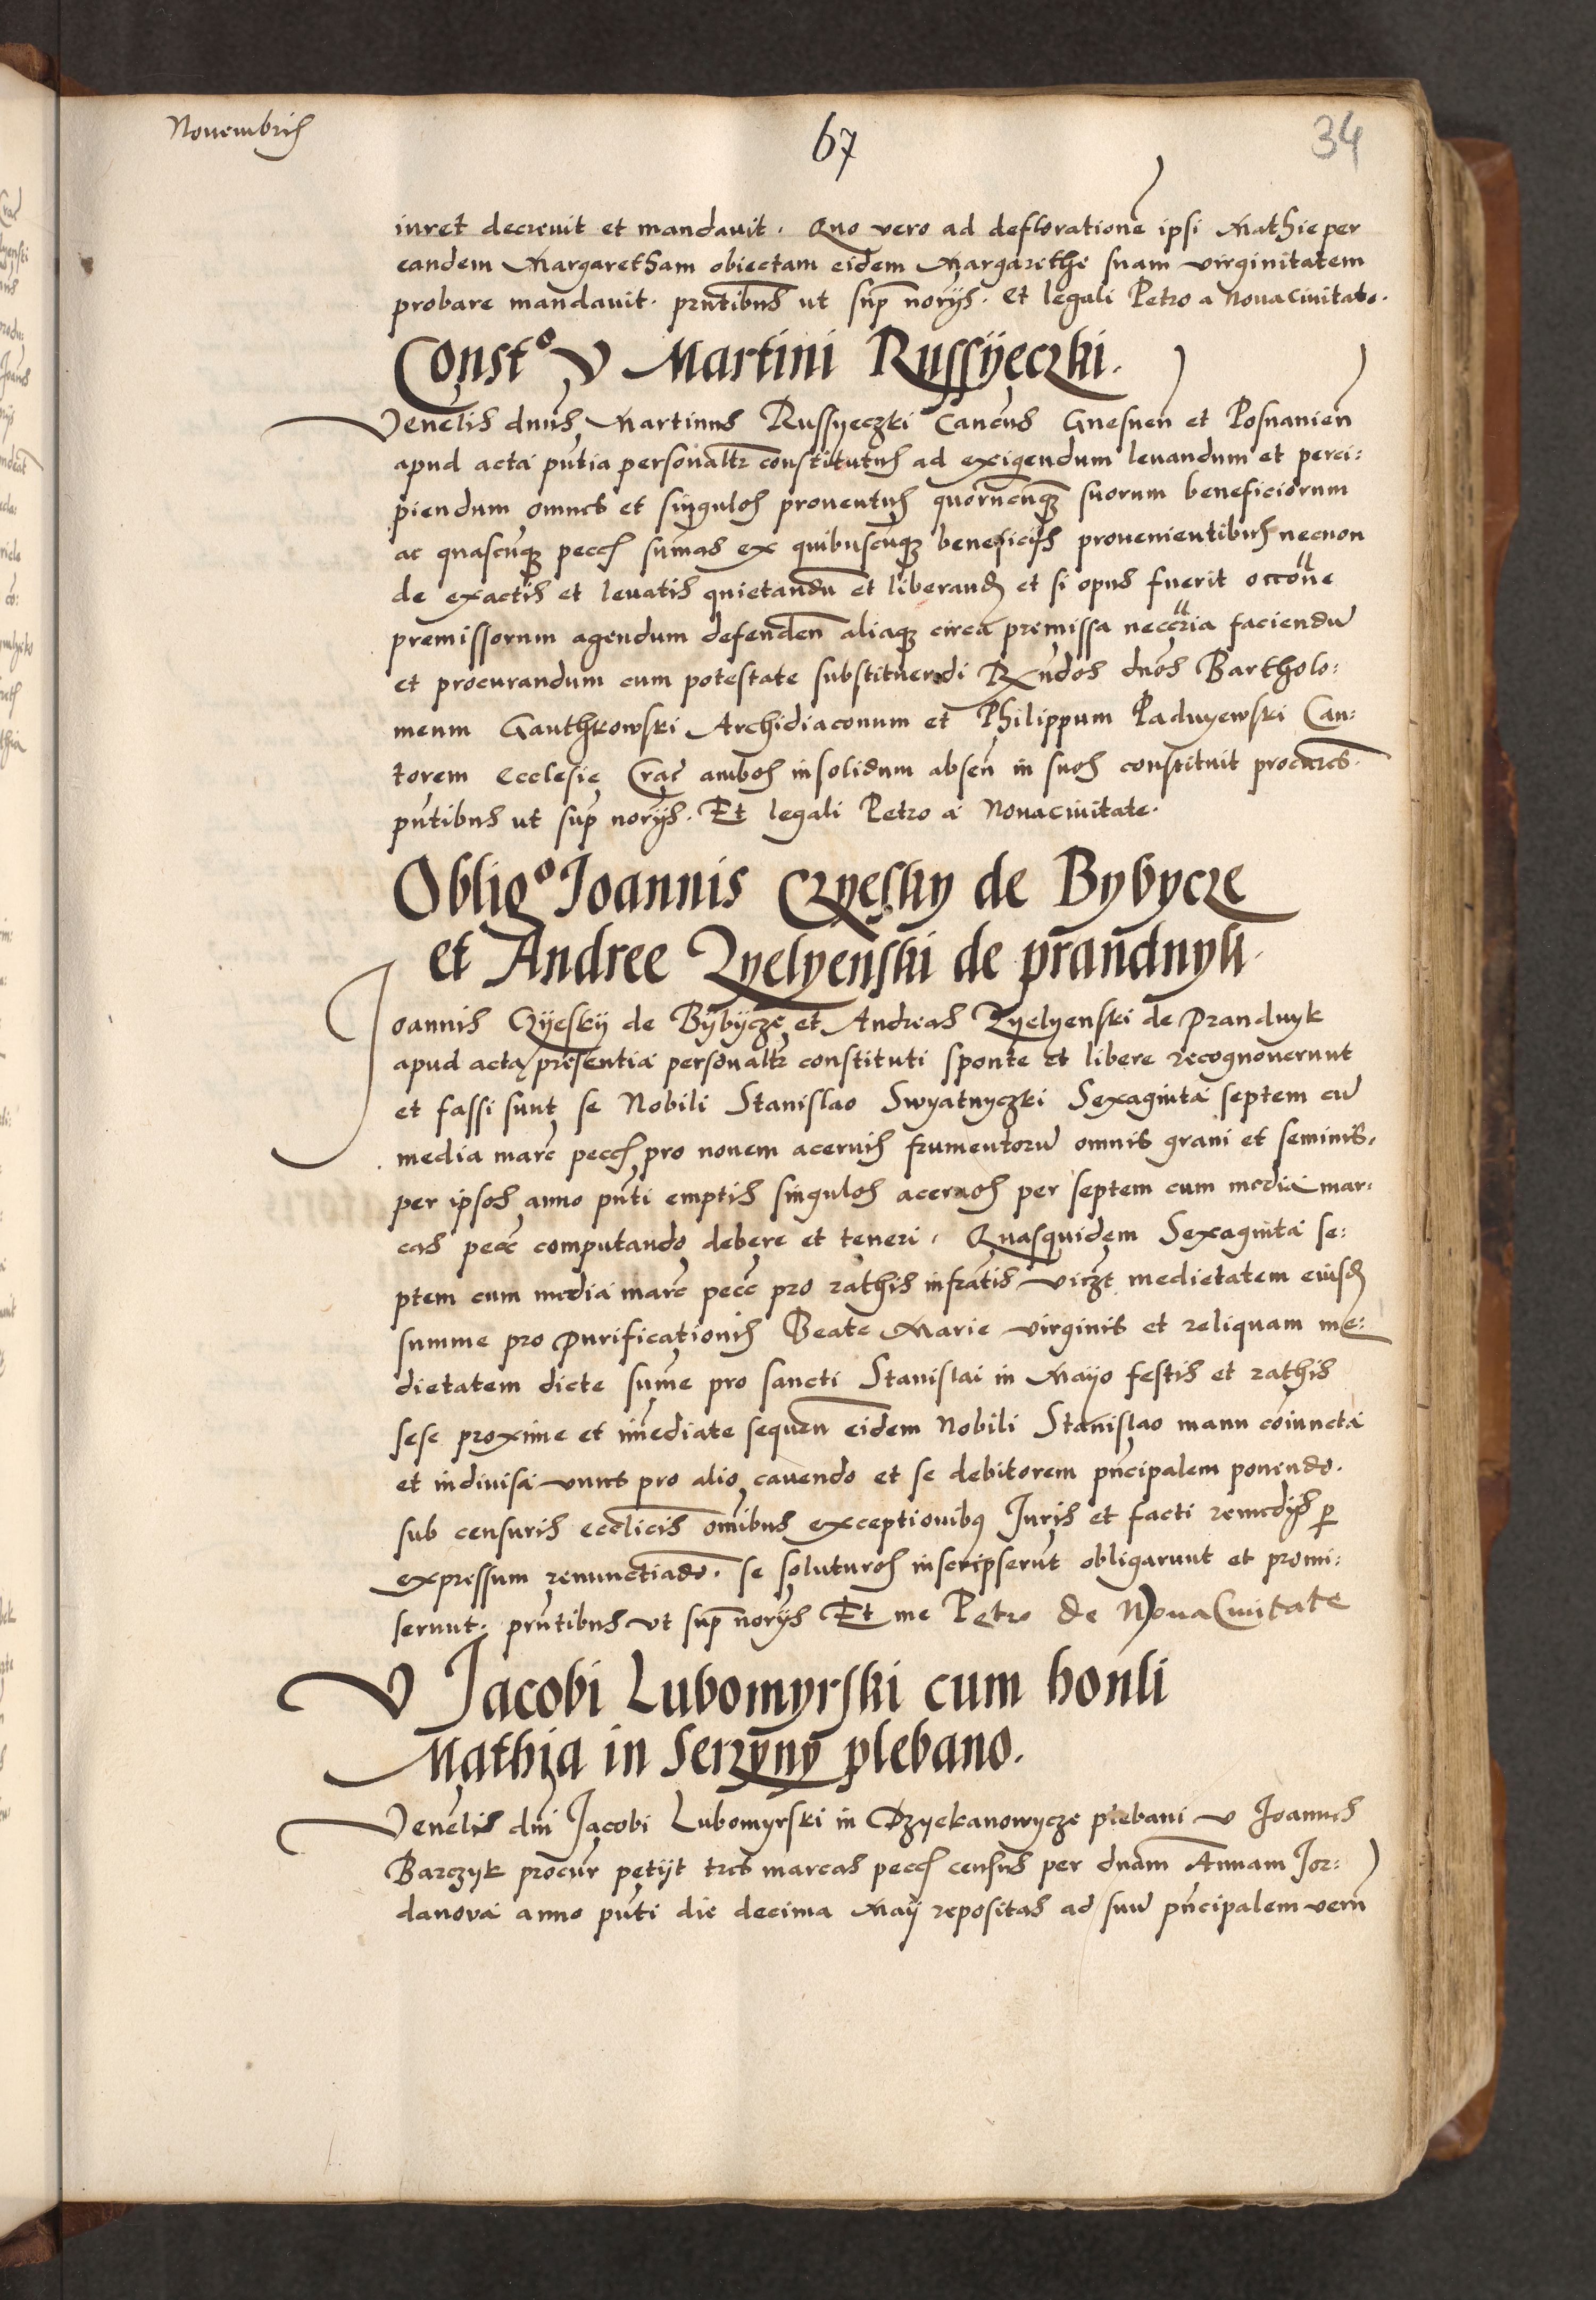 Novembris
67
34
iuret decrevit et mandavit. Quo vero ad deflorationē ipsi Mathie per
eandem Margaretham obiectam eidem Margarethe suam virginitatem
probare mandavit. pn̄tibus ut sup̄ norijs. Et legali Petro a Novacivitate.
Const⁰ V Martini Russÿeczki.
Venelis dn̄us Martinus Russyeczki Cancus Gnesnen̄ et Posnanien̄
apud acta pn̄tia personaltr constitutus ad exigendum levandum et perci:
piendum omnes et singulos proventus quorūcunq suorum beneficiorum
ac quascunq pecc̄ sūmas ex quibuscunq beneficijs provenientibus necnon
de exactis et levatis quietandū et liberand et si opus fuerit occōne
premissorum agendum defenden̄ aliaq circa premissa neccria faciendū
et procurandum cum potestate substituendi Rn̄dos dn̄os Bartholo:
meum Ganthkowski Archidiaconum et Philippum Padnyewski Can:
torem Ecclesię Crac̄ ambos insolidum absen̄ in suos constituit procures.
pn̄tibus ut sup̄ norijs. Et legali Petro a Novacivitate.
Oblig⁰ Joannis Czyesky de Bybycze
et Andree Zyelyenski de prandnyk.
Joannis Czÿeskÿ de Bÿbÿcze et Andreas Zyelyenski de Prandnyk
apud acta presentia personaltr constituti sponte et libere recognoverunt
et fassi sunt se Nobili Stanislao Swyatnyczki Sexaginta septem cū
media marc̄ pecc̄ pro novem acervis frumentorū omnis grani et seminis,
per ipsos anno pn̄ti emptis singulos acervos per septem cum media mar:
cas pecc̄ computando debere et teneri. Quasquidem Sexaginta se:
ptem cum media marc̄ pecc̄ pro rathis infratis viczt medietatem eiusd
summe pro Purificationis Beate Marie virginis et reliquam me:
dietatem dicte sum̄e pro sancti Stanislai in Mayo festis et rathis
sese proxime et im̄ediate sequen̄ eidem Nobili Stanislao manu cōiuncta
et indivisa unus pro alio cavendo et se debitorem pn̄cipalem ponendo.
sub censuris ecclicis om̄ibus exceptionibus Juris et facti remedijs p
expressum renunctiādo. se soluturos inscripserūt obligarunt et promi:
serunt. pn̄tibus ut sup̄ norijs Et me Petro de Nova Civitate
V Jacobi Lubomyrski cum honli
Mathia in Serzyny plebano.
Venelis dn̄i Jacobi Lubomyrski in Dzyekanowycze plebani V Joannes
Barczyk procur petijt tres marcas pecc̄ census per dn̄am Annam Jor:
danova anno pn̄ti die decima Maij repositas ad suū pn̄cipalem verū